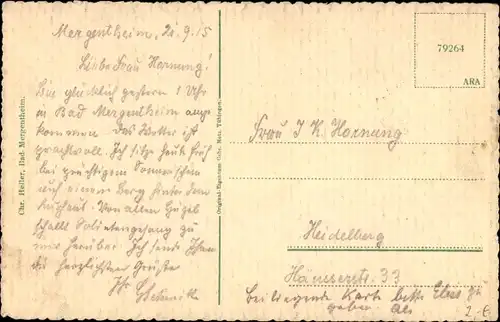 Mergentheim, 21.9.15
Liebe Frau Hornung!
Bin glücklich gestern 1 Uhr
in Bad Mergentheim ange
kommen. Das Wetter ist
prachtvoll. Ich sitze heute früh
bei prächtigem Sonnenschein
auf einem Berg hinter dem
Kurhaus. Von allen Hügel
schallt Soldatengesang zu
mir herüber. Ich sende Ihnen
die herzlichsten Grüße
Ihr
Chr. Heller, Bad Mergentheim.
Original-Eigentum Gebr. Metz, Tübingen.
79264
ARA
Frau J K. Hornung
Heidelberg
Häusserstr. 33
beiliegende Karte bitte Elsa zu
geben. Als
2,-€